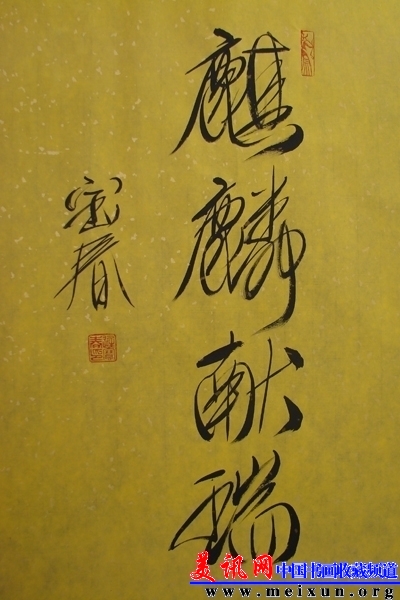 麒麟献瑞
宝春
美讯网 中国书画收藏频道
www.meixun.org